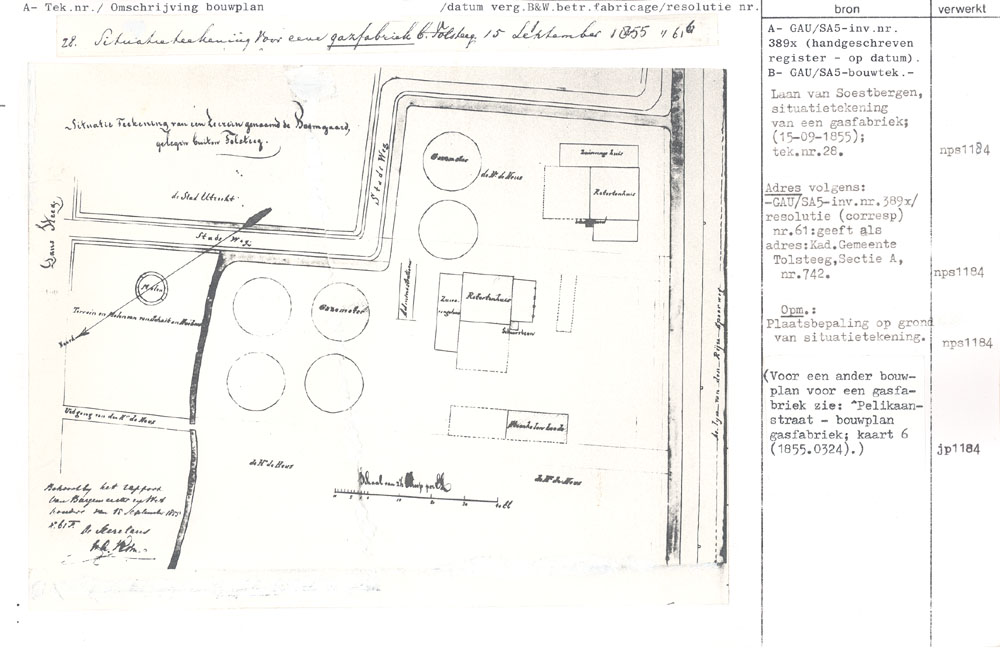 A- Tek.nr./ Omschrijving bouwplan /datum verg.B&W.betr.fabricage/resolutie nr. bron verwerkt
28. Situatieteekening voor eene gazfabriek b. Tolsteeg. 15 September 1855 n 61
Situatie Teekening van een terrein genaamd de Boomgaard,
gelegen buiten Tolsteeg.
de Stad Utrecht.
Stads Weg
Stads Weg
Gazometer
de Hr. de Heus
Zuiveringhuis
Retortenhuis
Molen
Terrein en
Noord
Gazometer
Administratie
Retortenhuis
Schoorsteen
Uitgang van den Hr. de Heus
de Hr. de Heus
Schaal van
de Hr. de Heus
Behoort bij het rapport
van Burgemeester en Wet
houders van 15 September 1855
No. 61
De Secretaris
A- GAU/SA5-inv.nr.
389x (handgeschreven
register - op datum).
B- GAU/SA5-bouwtek.-
Laan van Soestbergen,
situatietekening
van een gasfabriek;
(15-09-1855);
tek.nr.28.
nps1184
Adres volgens:
-GAU/SA5-inv.nr.389x/
resolutie (corresp)
nr.61:geeft als
adres:Kad.Gemeente
Tolsteeg,Sectie A,
nr.742.
nps1184
Opm.:
Plaatsbepaling op grond
van situatietekening.
nps1184
(Voor een ander bouw-
plan voor een gasfa-
briek zie: ^Pelikaan-
straat - bouwplan
gasfabriek; kaart 6
(1855.0324).)
jp1184